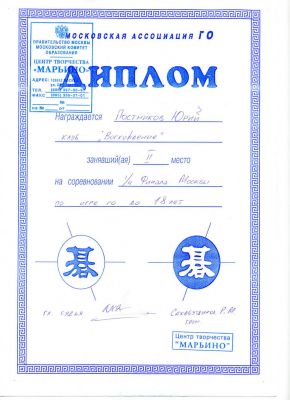 МОСКОВСКАЯ АССОЦИАЦИЯ ГО
ПРАВИТЕЛЬСТВО МОСКВЫ
МОСКОВСКИЙ КОМИТЕТ
ОБРАЗОВАНИЯ
ЦЕНТР ТВОРЧЕСТВА
"МАРЬИНО"
АДРЕС:
ТЕЛ.
ФАКС
№
на № от
ДИПЛОМ
Награждается Постников Юрий
клуб
занявший(ая) II место
на соревновании 1/4 Финала Москвы
по игре го до 18 лет
碁 碁
гл. судья
Центр творчества
"МАРЬИНО"